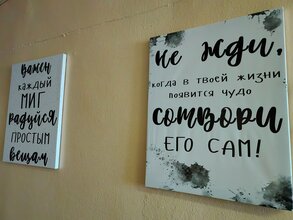 Важен
каждый
МИГ
радуйся
ПРОСТЫМ
вещам
Не жди,
когда в твоей жизни
появится чудо
СОТВОРИ
ЕГО САМ!